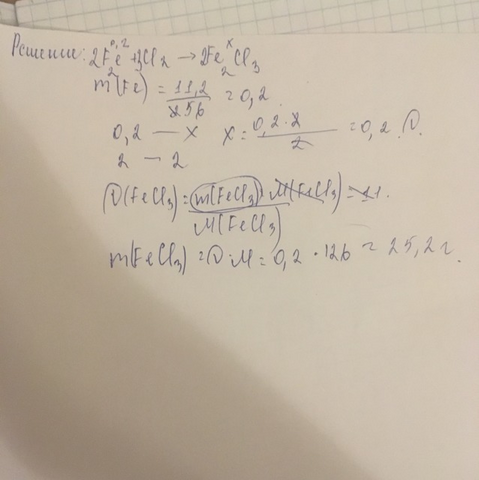 Решение: 2Fe + 3Cl2 → 2FeCl3
0,2 x
2 2
m(Fe) = 11,2 / 56 = 0,2
0,2 — x x = 0,2 · 2 / 2 = 0,2 ν.
2 — 2
ν(FeCl3) = m(FeCl3) · M(FeCl3) / M(FeCl3) =
m(FeCl3) = ν · M = 0,2 · 126 = 25,2 г.